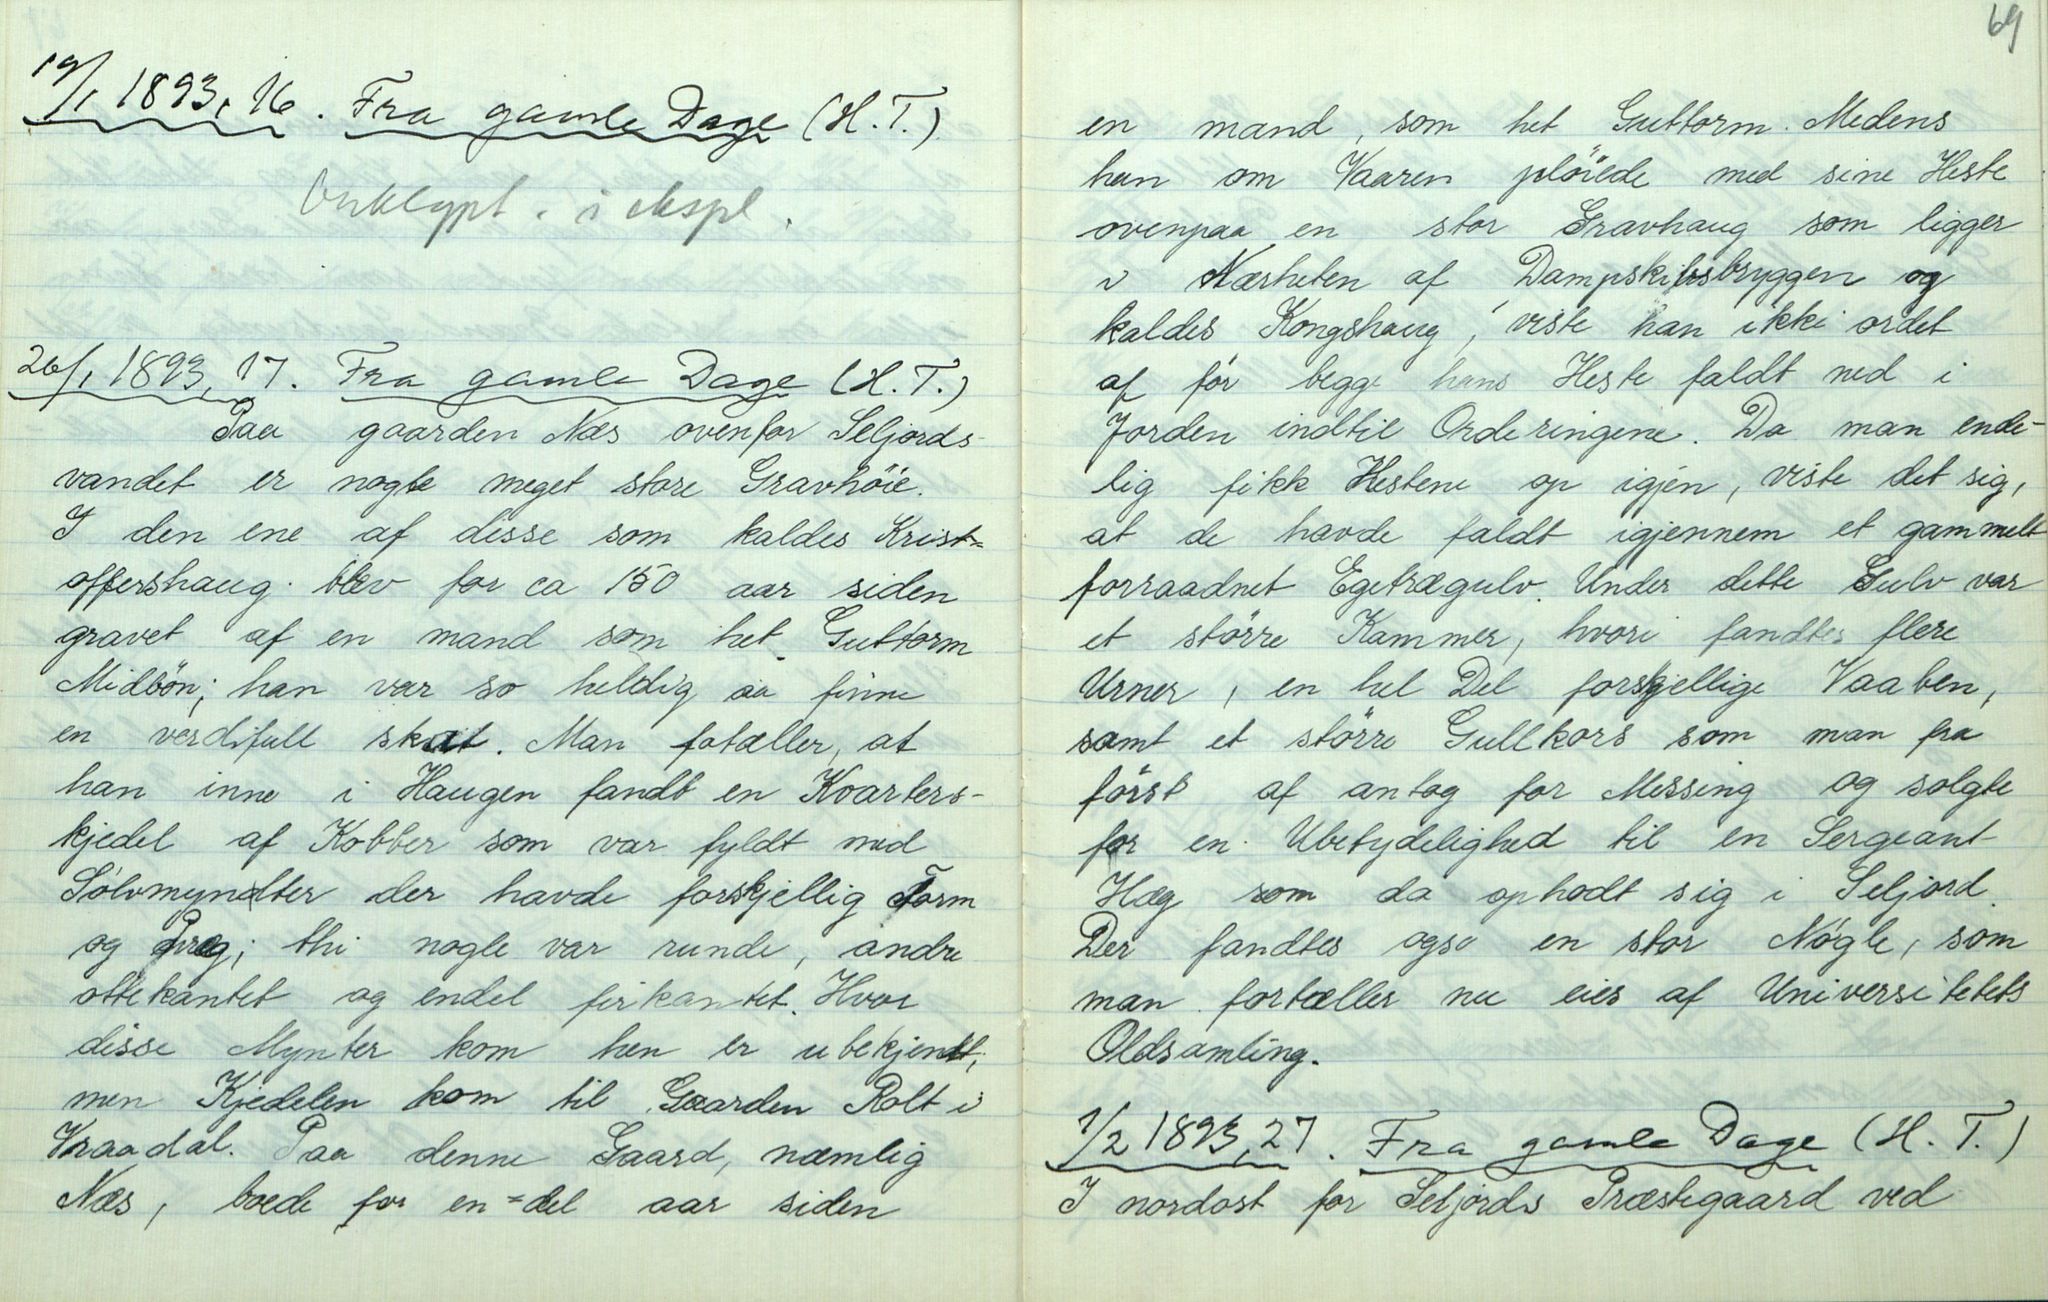 19/1 1893, 16. Fra gamle Dage (H. T.)
i ekspl.
26/1 1893, 17. Fra gamle Dage (H. T.)
Paa gaarden Næs ovenfor Seljords-
vandet er nogle meget store Gravhöie.
I den ene af disse som kaldes Krist=
offershaug blev for ca 150 aar siden
gravet af en mand som het Guttorm
Midbön; han var so heldig aa finne
en verdifull skat. Man fotæller, at
han inne i Haugen fandt en Kvarters-
kjedel af Kobber som var fyldt med
Sölvmyndter der havde forskjellig Form
og Preg; thi nogle var runde, andre
ottekantet og endel firkantet. Hvor
disse Mynter kom hen er ubekjendt,
men Kjedelen kom til Gaarden Rolt i
Vraadal. Paa denne Gaard, næmlig
Næs, boede for en=del aar siden
69
en mand, som het Guttorm. Medens
han om Vaaren plöiede med sine Heste
ovenpaa en stor Gravhaug som ligger
i Nærheten af Dampskibsbryggen og
kaldes Kongshaug, viste han ikki ordet
af för begge hans Heste faldt ned i
Jorden indtil Orderingene. Da man ende-
lig fikk Hestene op igjén, viste det sig,
at de havde faldt igjennem et gammelt
forraadnet Egetrægulv. Under dette Gulv var
et större Kammer, hvori fandtes flere
Urner, en hel Del forskjellige Vaaben,
samt et större Gullkors som man fra
först af antog for Messing og solgte
for en Ubetydelighed til en Sergeant
Hæg som da ophodt sig i Seljord.
Der fandtes ogso en stor Nögle, som
man fortæller nu eies af Universitetets
Oldsamling.
7/2 1893, 27. Fra gamle Dage (H. T.)
I nordost for Seljords Præstegaard ved